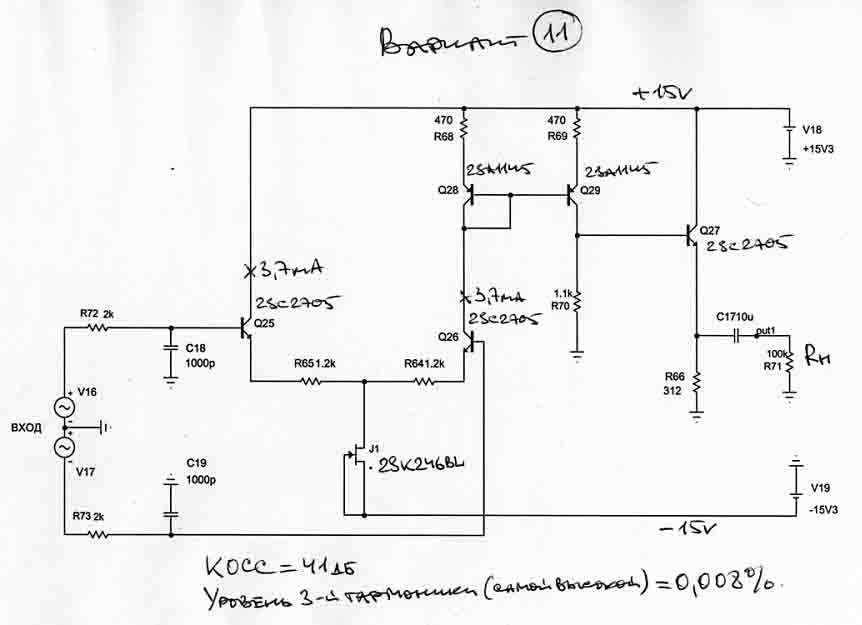 Вариант 11
+15V
470
R68
470
R69
V18
+15V3
2SA1145
2SA1145
Q28
Q29
Q27
2SC2705
3,7mA
2SC2705
Q25
3,7mA
2SC2705
Q26
1.1k
R70
R72 2k
C18
1000p
C1710u
out1
R651.2k
R641.2k
100k
R71
Rн
R66
312
V16
ВХОД
V17
J1
2SK246BL
C19
1000p
V19
-15V3
R73 2k
-15V
КОСС = 41дБ
Уровень 3-й гармоники (самой высокой) = 0,008%.